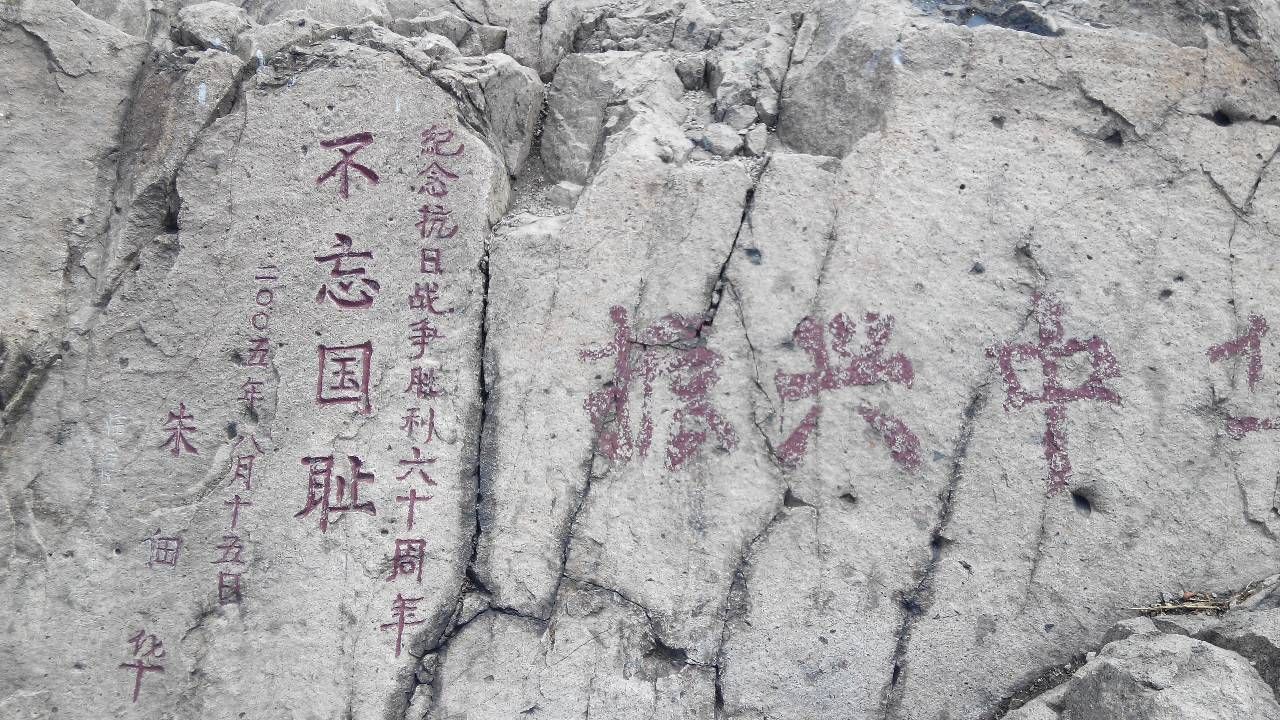 紀念抗日战争胜利六十周年
不忘国耻
二〇〇五年八月十五日
朱佃华
振兴中